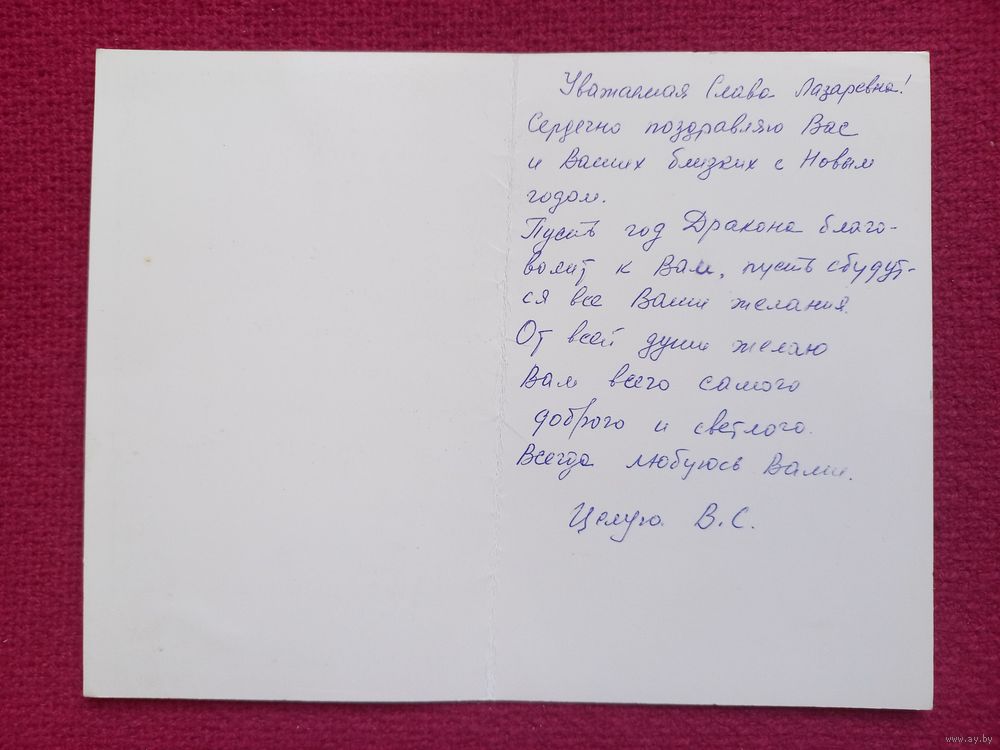 Уважаемая Слава Лазаревна!
Сердечно поздравляю Вас
и Ваших близких с Новым
годом.
Пусть год Дракона благо-
волит к Вам, пусть сбудут-
ся все Ваши желания.
От всей души желаю
Вам всего самого
доброго и светлого.
Всегда любуюсь Вами.
Целую В.С.
www.ay.by